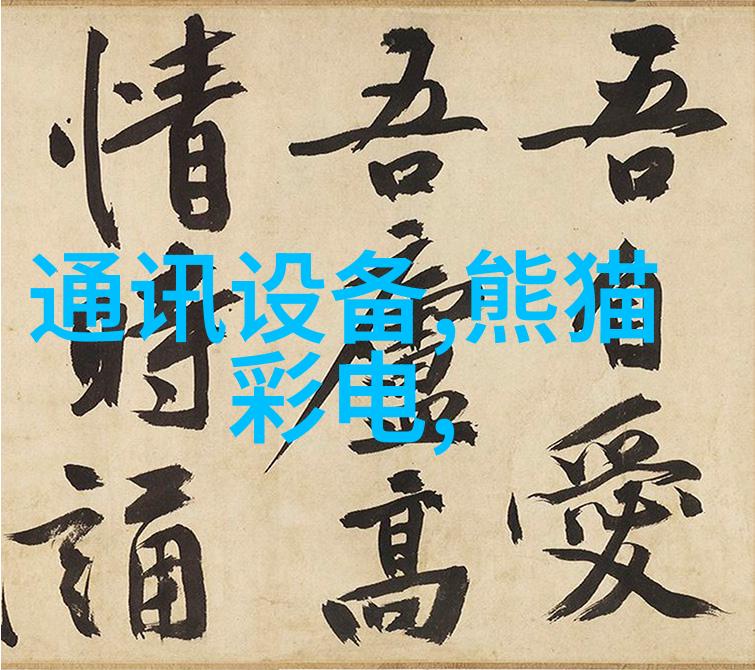 吾自愛
吾廬高
情時誦
通讯设备,熊猫
彩电,